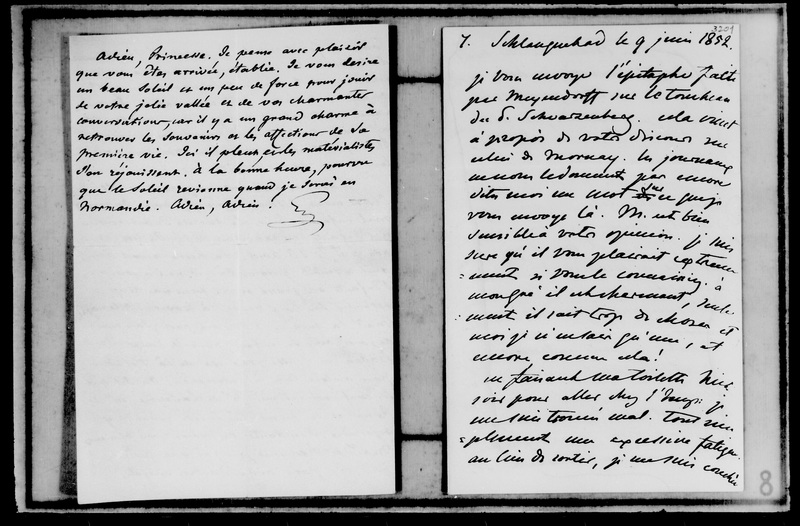 Adieu, Princesse. Je pense avec plaisir
que vous êtes arrivée, établie. Je vous désire
un beau soleil et un peu de force pour jouir
de votre jolie vallée et de vos charmantes
conversations, car il y a un grand charme à
retrouver les souvenirs et les affections de sa
première vie. Ici il pleut et les matérialistes
s'en réjouissent. à la bonne heure, pourvu
que le soleil revienne quand je serai en
Normandie. Adieu, Adieu.
3209
7. Schlangenbad le 9 juin 1852.
je vous envoye l'épitaphe faite
par Meyendorff sur le tombeau
du P. Schwarzenberg. cela vient
à propos de votre discours
celui de Mornay. les journaux
ne nous le donnent pas encore
dites moi un mot sur ce que je
vous envoye là. M. est bien
sensible à votre opinion. je suis
sure qu'il vous plairait extreme
=ment si vous le connaissiez. à
mon gré il est charmant, seule
ment il sait trop de choses et
moi je n'en sais qu'une, et
encore comme cela!
en faisant ma toilette hier
soir pour aller chez l'Imp: je
me suis trouvée mal. tout sim
=plement une excessive fatigue
au lieu de sortir, je me suis couchée
8